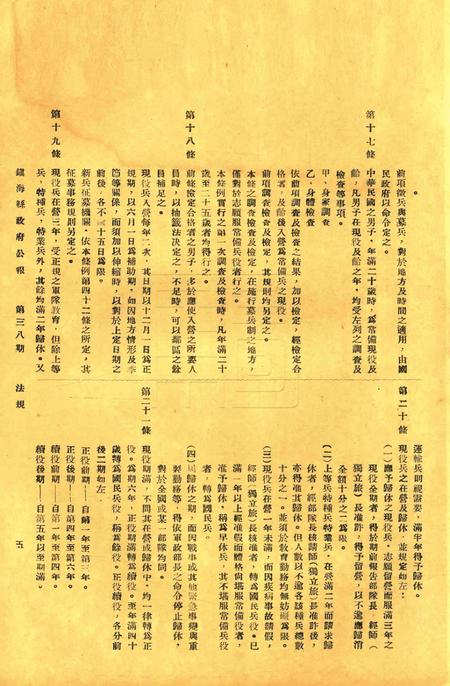 前項徵兵與募兵，對於地方及時間之適用，由國
民政府以命令定之。
第十七條　中華民國之男子，年滿二十歲時，爲常備現役及
齡，凡男子在現役及齡之年，均受左列之調查及
檢查等事項。
甲、身家調查
乙、身體檢查
依前項調查及檢查之結果，加以檢定，經檢定合
格者，及齡後入營爲常備兵之現役。
前項調查檢查及檢定，其規則另定之。
本條之調查檢查及檢定，在施行募兵制之地方，
僅對於志願服常備兵役者行之。
本條例實行之第一次調查及檢查時，凡年滿二十
歲至二十五歲者均得行之。
第十八條　前條檢定合格者之男子，多於應使入營之所要人
員時，以抽籤法決定之，不足時，可以鄰區之餘
員補足之。
現役兵入營每年二次，其日期以十二月一日爲正
規期，以六月一日爲補助期，如因地方情形及季
節等關係，而須加以伸縮時，以對於上定日期之
前後，各不過十五日爲限。
新兵征募機關，依本條例第四十二條之所定，其
征募事務規則另定之。
第十九條　現役兵在營三年，受正規之軍隊教育，但除上等
兵，特種兵，特業兵外，其餘均滿二年歸休。又
鎮海縣政府公報　第三八期　法規
運輸兵則視需要，滿半年得予歸休。
第二十條　現役兵之在營及歸休，並規定如左：
（一）應予歸休之現役兵，志願留營而服滿三年之
現役全期者，得於期前報告部隊長，經師（
獨立旅）長准許，得予留營，以不逾應歸消
全額十分之二爲限。
（二）上等兵特種兵特業兵，在營滿二年而請求歸
休者，經部隊長核請師（獨立旅）長准許後，
亦得准其歸休。但人數以不逾各該種兵總數
十分之一，並須於教育勤務均無妨礙爲限。
（三）現役兵在營一年未滿，而因疾病事故請假，
經師（獨立旅）長核准者，轉爲國民兵役。已
滿一年以上經准假而體格尚堪服常備役者，
准予歸休，稱爲早休兵，其不堪服常備兵役
者，轉爲國民兵。
（四）屆歸休之期，而因戰事或其他緊急事變與重
要勤務等，得依軍政部長之命令停止歸休，
對於全國或某一部隊均同。
第二十一條　現役期滿，不問其在營或歸休中，均一律轉爲正
役。爲期六年，正役期滿轉爲續役。至年滿四十
歲轉爲國民兵役，稱爲餘役。正役續役，各分前
後二期如左。
正役前期——自第一年至第三年。
正役後期——自第四年至第六年。
續役前期——自第一年至第四年。
續役後期——自第五年以至期滿
五